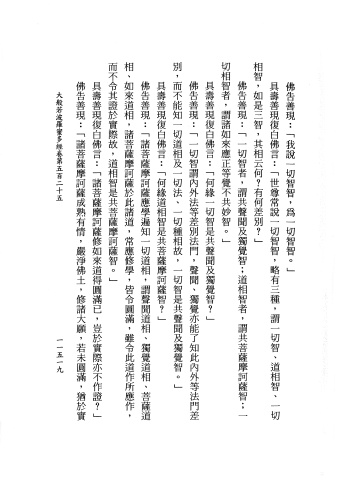 佛告善現：「我說一切智智，爲一切智智。」
具壽善現復白佛言：「世尊常說一切智智，略有三種，謂一切智、道相智、一切
相智，如是三智，其相云何？有何差別？」
佛告善現：「一切智者，謂共聲聞及獨覺智；道相智者，謂共菩薩摩訶薩智；一
切相智者，謂諸如來應正等覺不共妙智。」
具壽善現復白佛言：「何緣一切智是共聲聞及獨覺智？」
佛告善現：「一切智謂內外法等差別法門，聲聞、獨覺亦能了知此內外等法門差
別，而不能知一切道相及一切法、一切種相故，一切智是共聲聞及獨覺智。」
具壽善現復白佛言：「何緣道相智是共菩薩摩訶薩智？」
佛告善現：「諸菩薩摩訶薩應學遍知一切道相，謂聲聞道相、獨覺道相、菩薩道
相、如來道相，諸菩薩摩訶薩於此諸道，常應修學，皆令圓滿，雖令此道作所應作，
而不令其證於實際故，道相智是共菩薩摩訶薩智。」
具壽善現復白佛言：「諸菩薩摩訶薩修如來道得圓滿已，豈於實際亦不作證？」
佛告善現：「諸菩薩摩訶薩成熟有情，嚴淨佛土，修諸大願，若未圓滿，猶於實
大般若波羅蜜多經卷第五百二十五
一一五一九